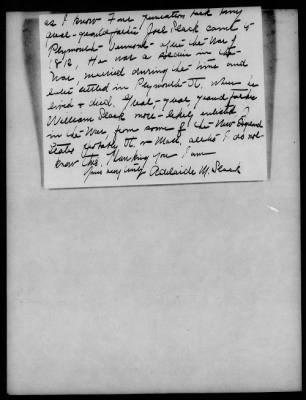 as I know Four generation back my
great-grandfather Joel Slack came to
Plymouth Vermont after the War of
1812. He was a              in the
War, married during the time and
later settled in Plymouth Vt. where he
lived & died. Great-great grandfather
William Slack more-likely enlisted
in the War, from some of the New England
States probably Vt or Mass, altho I do not
know this. Thanking you I am
yours very truly Adelaide M. Slack